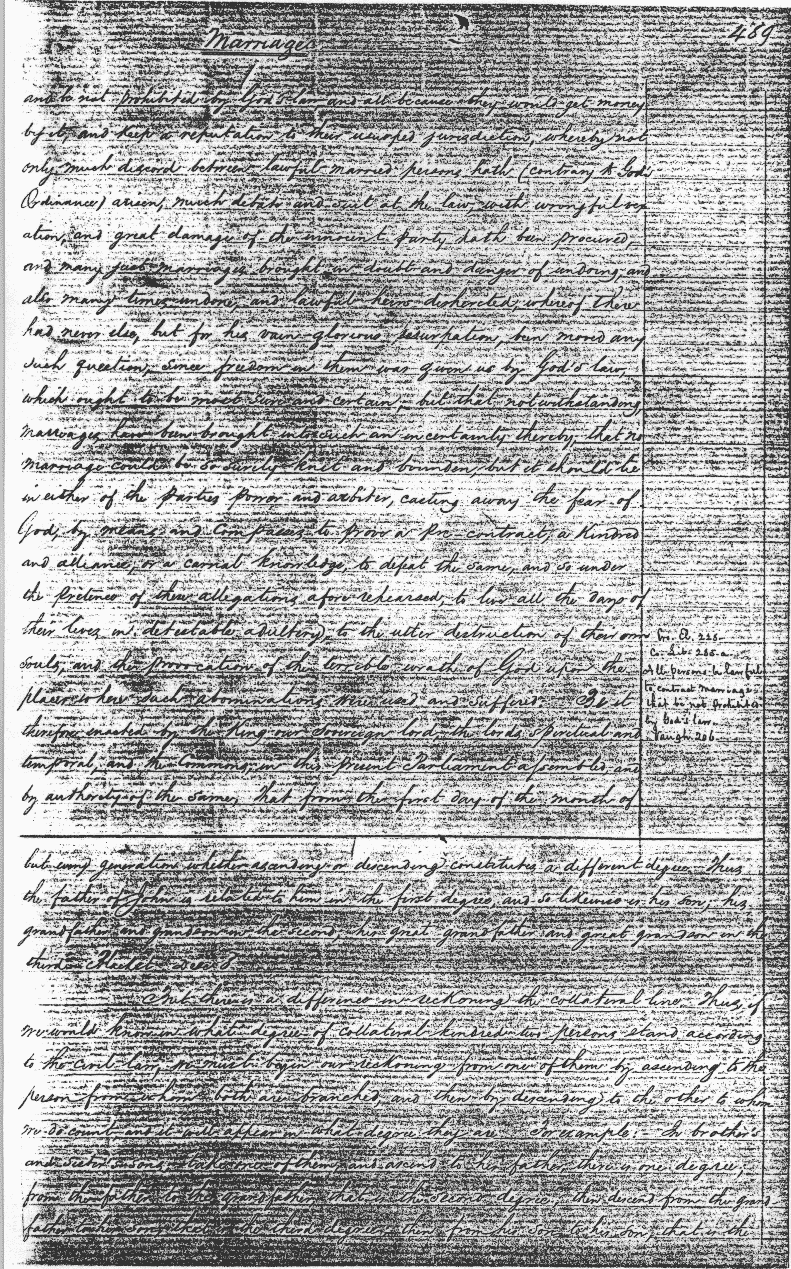 Marriages
489
and be not prohibited by God's law and all because they would get money
by it, and keep a reputation to their usurped jurisdiction, whereby not
only much discord between lawful married persons hath (contrary to God's
Ordinance) arisen, much debate and suit at the law, with wrongful vex
ation, and great damage of the innocent party hath been procured,
and many just marriages brought in doubt and danger of undoing, and
also many times undone, and lawful heirs disherited, whereof there
had never else, but for his vain-glorious usurpation, been moved any
such question, since freedom in them was given us by God's law,
which ought to be most sure and certain, but that notwithstanding,
marriages have been brought into such an uncertainty thereby, that no
marriage could be so surely knit and bounden, but it should lie
in either of the parties power and arbiter, casting away the fear of
God, by means and compasses to prove a Pre-contract, a Kindred
and alliance, or a carnal knowledge, to defeat the same, and so under
the pretence of these allegations afore rehearsed, to live all the days of
their lives in detestable adultery, to the utter destruction of their own
souls, and the provocation of the terrible wrath of God upon the
places where such abominations were used and suffered. Be it
therefore enacted by the King our Sovereign lord, the lords spiritual and
temporal, and the Commons, in this present Parliament assembled, and
by authority of the same, That from the first day of the month of
Cro. El. 228.
Co. Lit. 235. a.
All persons be lawful
to contract marriage
that be not prohibited
by God's law.
Vaugh. 206.
but every generation whether ascending or descending constitutes a different degree. Thus
the father of John is related to him in the first degree, and so likewise is his son; his
grandfather and grandson in the second; his great grandfather and great grandson in the
third.
But there is a difference in reckoning the collateral line. Thus, if
we would know in what degree of collateral kindred two persons stand according
to the civil law, we must begin our reckoning from one of them by ascending to the
person from whom both are branched, and then by descending to the other to whom
we do count and it will appear in what degree they are. For example:- In brother's
and sister's sons, take one of them, and ascend to his father, there is one degree;
from the father to the grandfather, that is the second degree; then descend from the grand-
father to his son, that is the third degree; then from his son to his son, that is the